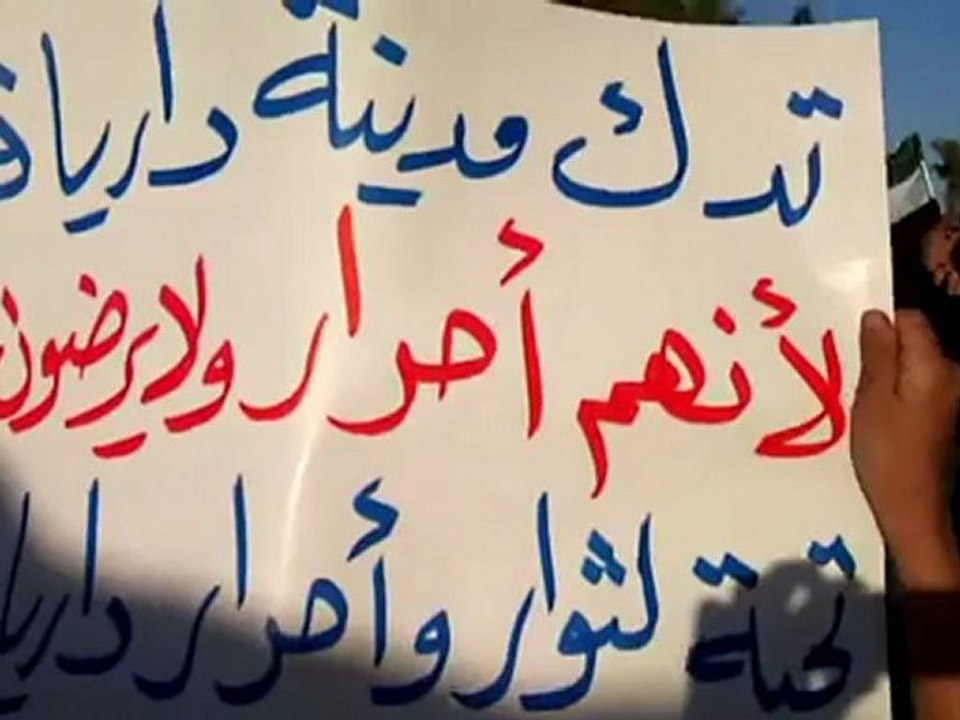 تدك مدينة داريا
لأنهم أحرار ولا يرضون
تحية لثوار وأحرار داريا